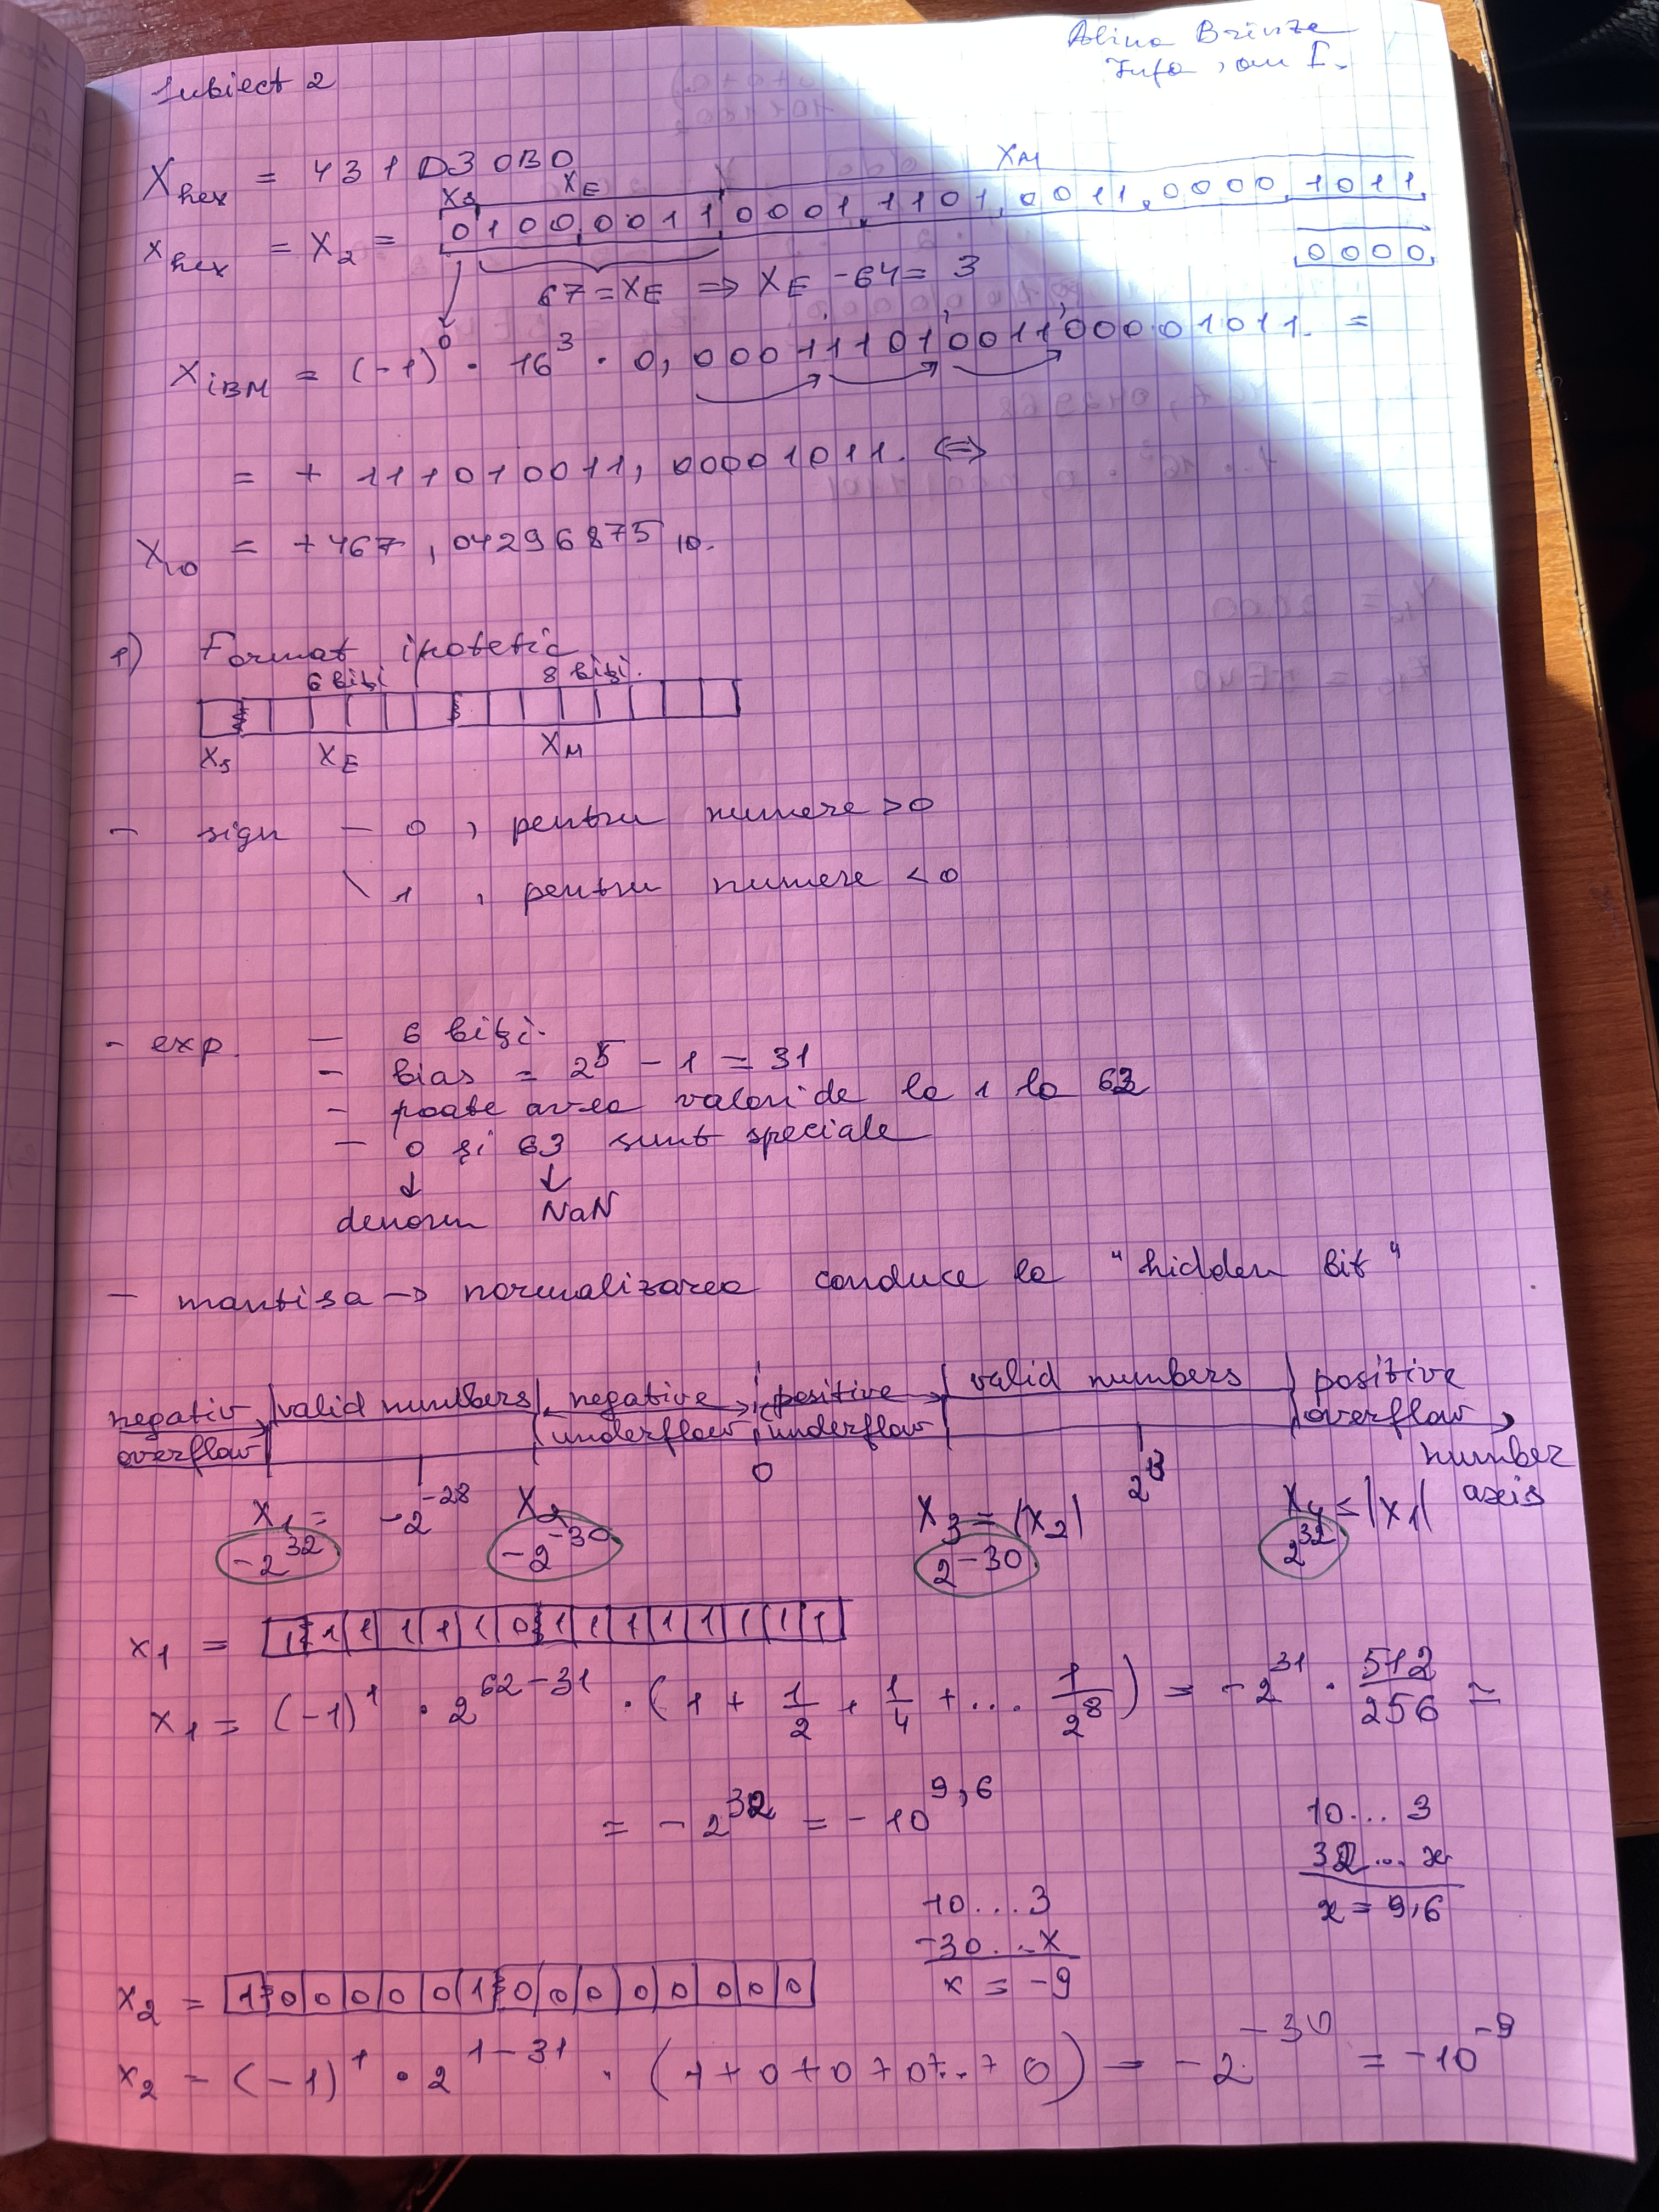 Alina Brînze
Info, an I.
Subiect 2
X hex = 431D30B0
XS XE XM
x hex = X2 = 0 100 0011 0001 1101 0011 0000 1011
0000
67 = XE => XE - 64 = 3
0
X iBM = (-1)^0 · 16^3 · 0,000111010011000001011. =
= + 111010011, 00001011. <=>
X10 = +467,04296875 10.
1) Format ipotetic
6 biți 8 biți.
XS XE XM
- sign - 0, pentru numere >0
\ 1, pentru numere <0
- exp. - 6 biți.
- bias = 2^5 - 1 = 31
- poate avea valori de la 1 la 62
- 0 și 63 sunt speciale
↓ ↓
denorm NaN
- mantisa -> normalizarea conduce la "hidden bit"
negativ overflow | valid numbers | negative underflow | positive underflow | valid numbers | positive overflow
0
number axis
X1 = -2^-28 X2 X3 = |X2| X4 = |X1|
-2^32 -2^-30 2^-30 2^32
x1 = 1 111110 11111111
x1 = (-1)^1 · 2^62-31 · (1 + 1/2 + 1/4 + ... 1/2^8) = -2^31 · 512/256 ≃
= -2^32 = -10^9,6
10...3
32...x
x = 9,6
10...3
-30...x
x = -9
x2 = 1 000001 00000000
x2 = (-1)^1 · 2^1-31 · (1+0+0+0+..+0) = -2^-30 = -10^-9